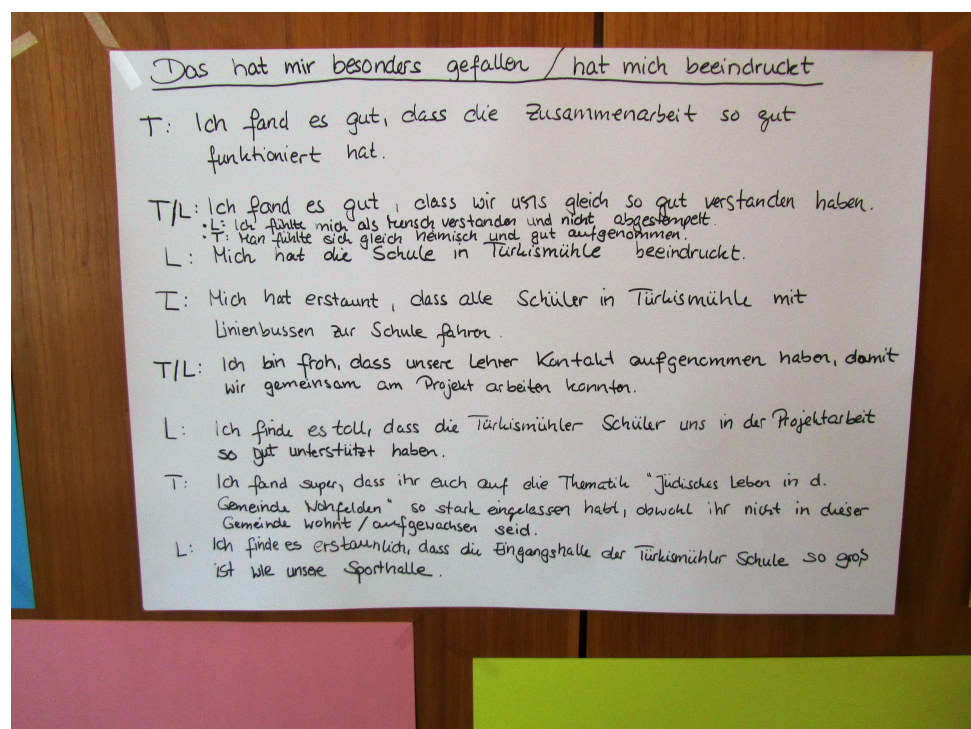 Das hat mir besonders gefallen / hat mich beeindruckt
T: Ich fand es gut, dass die Zusammenarbeit so gut
funktioniert hat.
T/L: Ich fand es gut, dass wir uns gleich so gut verstanden haben.
• L: Ich fühlte mich als Mensch verstanden und nicht abgestempelt.
• T: Man fühlte sich gleich heimisch und gut aufgenommen.
L: Mich hat die Schule in Türkismühle beeindruckt.
L: Mich hat erstaunt, dass alle Schüler in Türkismühle mit
Linienbussen zur Schule fahren.
T/L: Ich bin froh, dass unsere Lehrer Kontakt aufgenommen haben, damit
wir gemeinsam am Projekt arbeiten konnten.
L: Ich finde es toll, dass die Türkismühler Schüler uns in der Projektarbeit
so gut unterstützt haben.
T: Ich fand super, dass ihr euch auf die Thematik "Jüdisches Leben in d.
Gemeinde Nohfelden" so stark eingelassen habt, obwohl ihr nicht in dieser
Gemeinde wohnt / aufgewachsen seid.
L: Ich finde es erstaunlich, dass die Eingangshalle der Türkismühler Schule so groß
ist wie unsere Sporthalle.